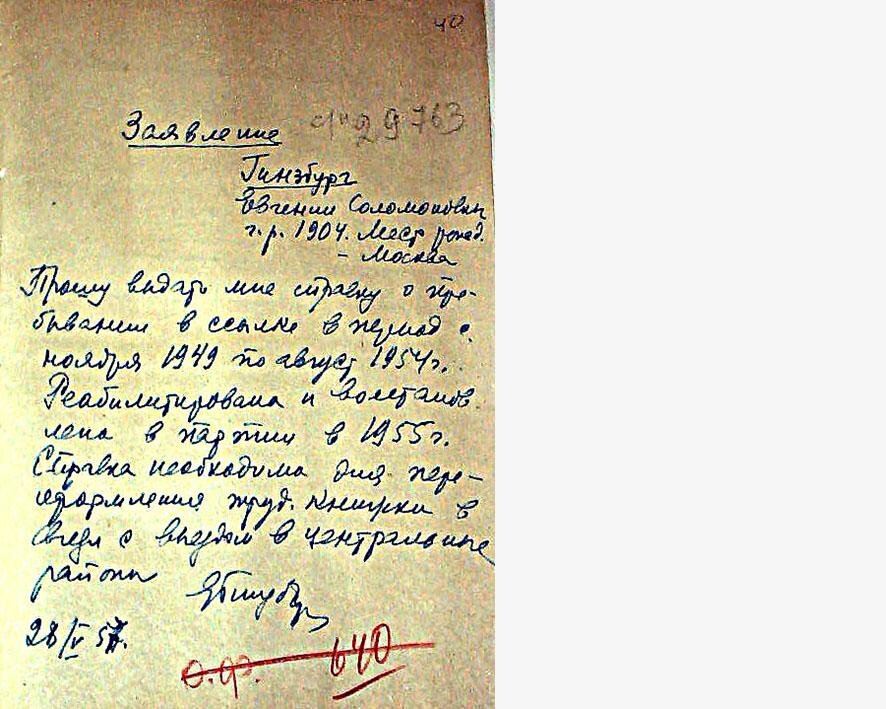 40
Заявление
29763
Гинзбург
Евгении Соломоновны
г.р. 1904. Мест рожд.
- Москва
Прошу выдать мне справку о пре-
бывании в ссылке в период с
ноября 1949 по август 1954г.
Реабилитирована и восстанов
лена в партии в 1955г.
Справка необходима для пере-
оформления труд. книжки в
связи с выездом в центральные
районы
28/V 57.
о.ф. 640